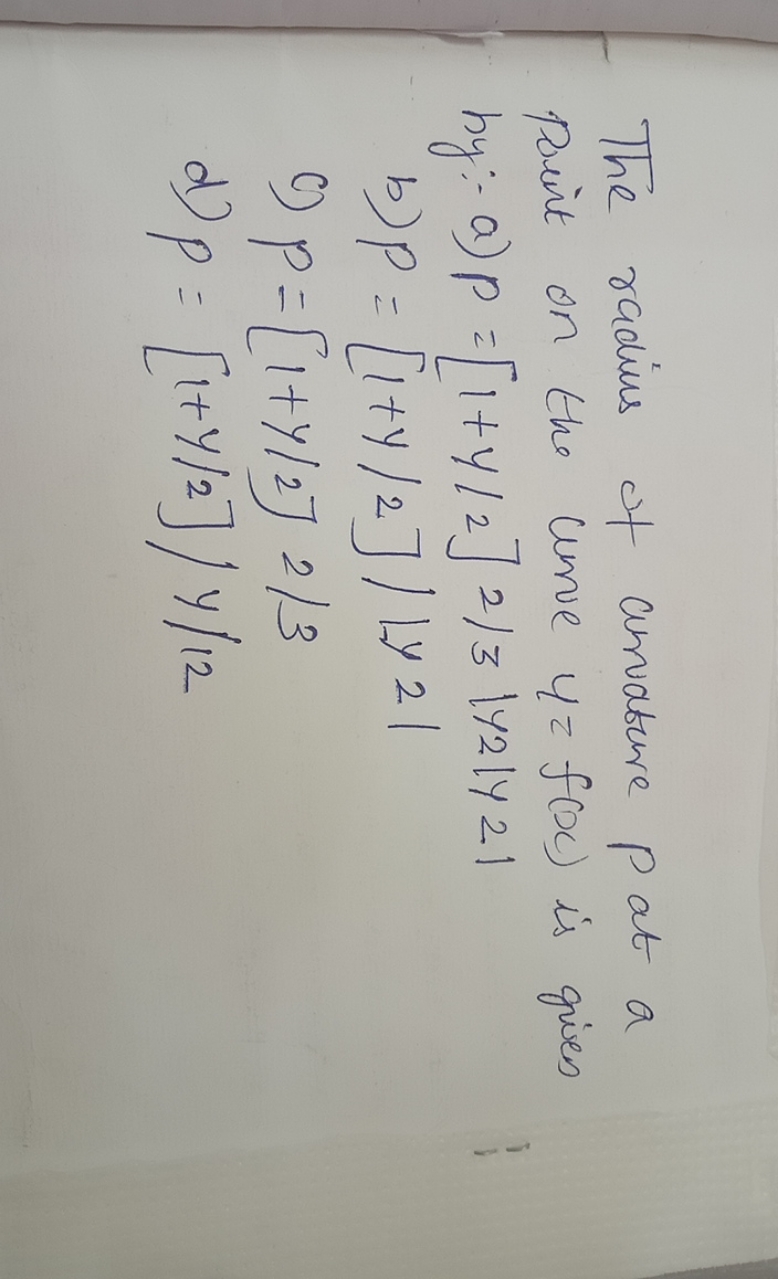 The radius of curvature p at a
point on the curve y = f(x) is given
by:- a) p = [1+y/2] 2/3 |y2|y2|
b) p = [1+y/2] / |y2|
c) p = [1+y/2] 2/3
d) p = [1+y/2] / y/12